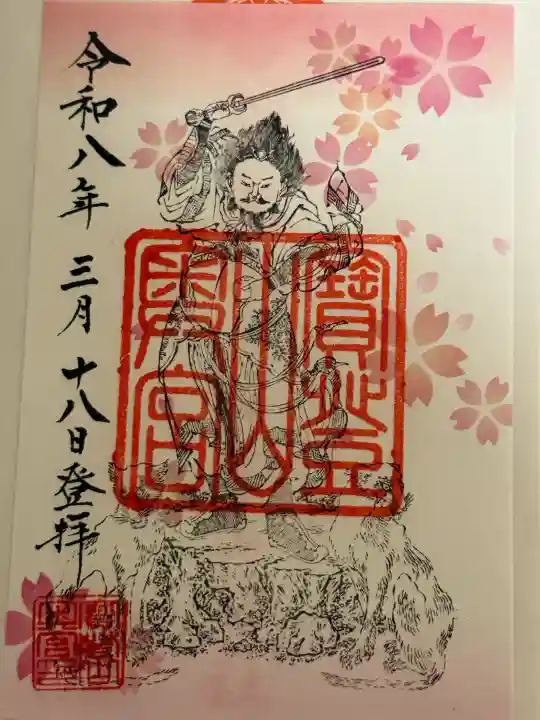 寶登山
奥宮
令和八年 三月 十八日登拝